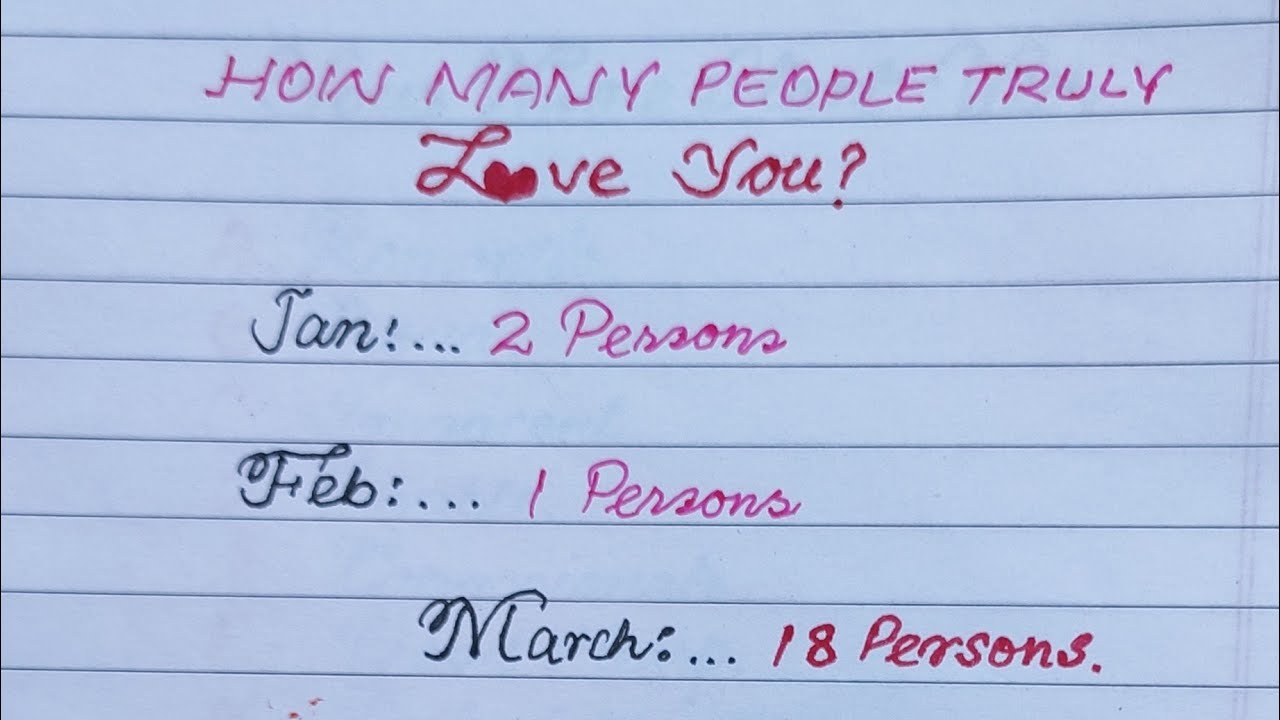 HOW MANY PEOPLE TRULY
Love You?
Jan:... 2 Persons
Feb:... 1 Persons
March:... 18 Persons.